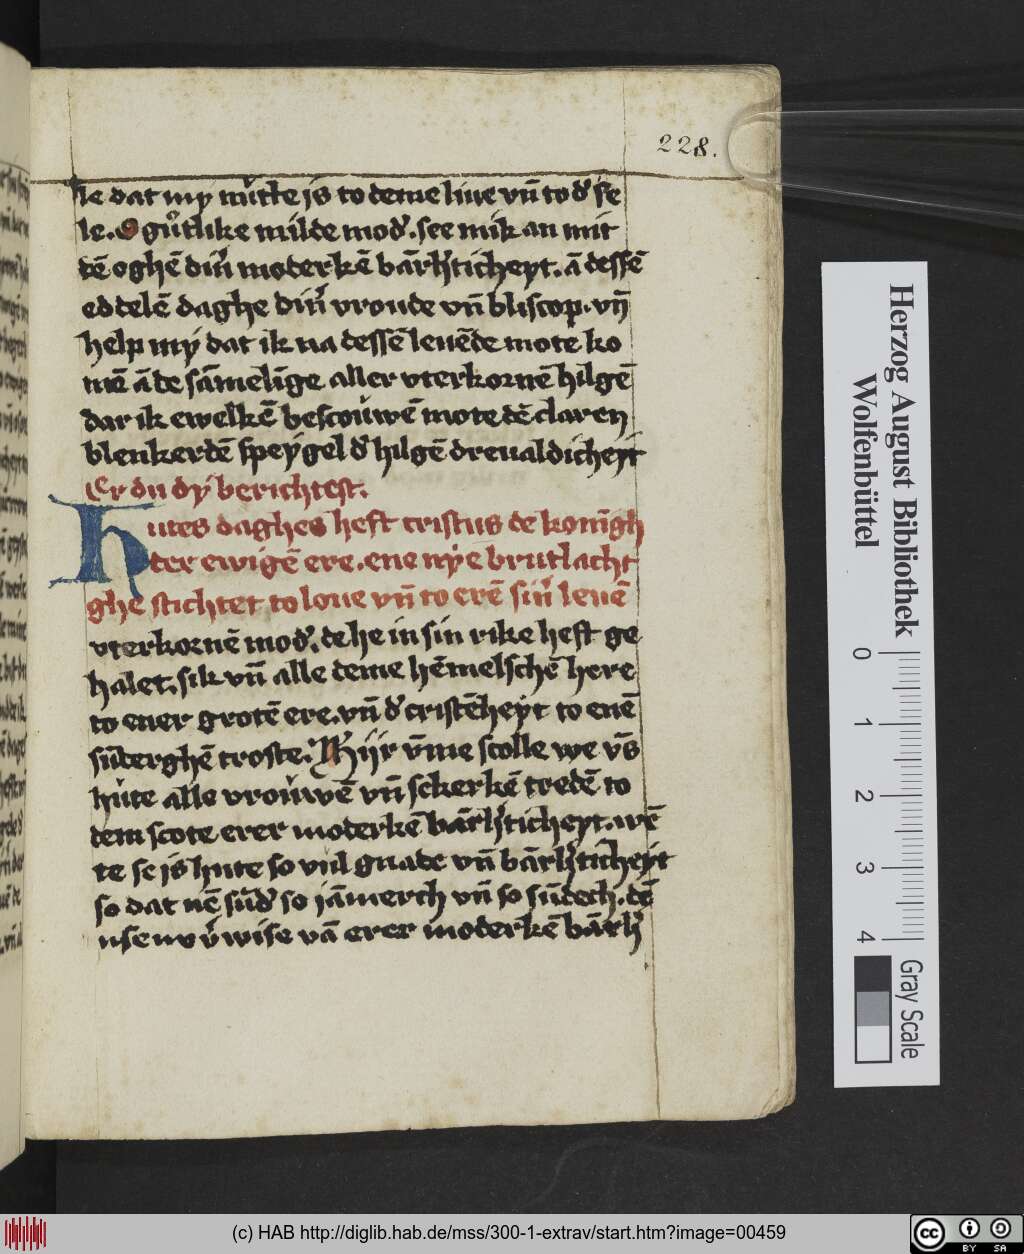 228.
le dat my nu̇tte is to deme liue vn̄ to dꝰ se
le. O gu̇tlike milde modꝰ. see mik an mit
dē oghē dinꝰ moderkē bārhꝰticheyt. ā dessē
eddelē daghe dinꝰ vroude vn̄ bliscop. vn̄
help mẏ dat ik na dessē leuēde mote ko
mē ā de sāmelīge aller vterkornē hilgē
dar ik ewelkē bescou̇wē mote dē claren
blenkerdē speẏgel dꝰ hilgē dreualdicheyt
Er du dẏ berichtest.
Hutes daghes heft cristus de konīgh
der ewigē ere. ene nẏe brutlacht
ghe stichtet to loue vn̄ to erē sinꝰ leuē
vterkornē modꝰ. de he in sin rike heft ge
halet. sik vn̄ alle deme hēmelschē here
to ener grotē ere. vn̄ dꝰ cristēheyt to enē
sūderghē troste. Hijr v̄me scolle we vꝰs
hu̇te alle vrou̇wē vn̄ sckerkē tredē to
dem scote erer moderkē bārhꝰticheyt. wē
te se is hute so vul gnade vn̄ bārhꝰticheyt
so dat nē sūdꝰ so jāmerch vn̄ so sūdech. dē
vꝰwise vā erer moderkē bārhꝰ
Herzog August Bibliothek
Wolfenbüttel
0 1 2 3 4
Gray Scale
(c) HAB http://diglib.hab.de/mss/300-1-extrav/start.htm?image=00459
cc BY SA